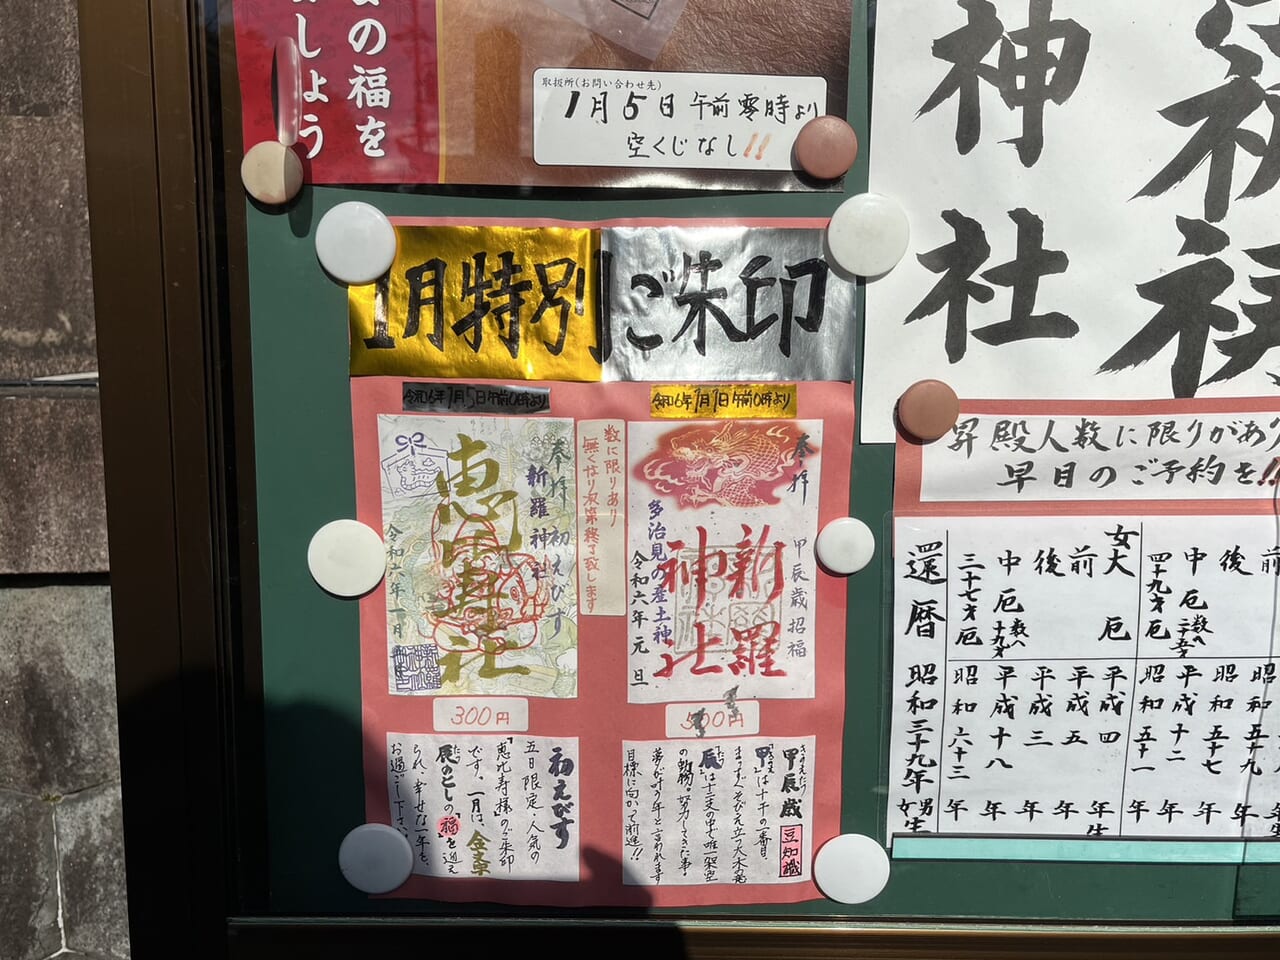 の福を
しょう
取扱所(お問い合わせ先)
1月5日 午前零時より
空くじなし!!
神社
1月特別ご朱印
令和6年1月5日午前0時より
令和6年1月1日午前0時より
奉拝 初えびす
新羅神社
恵比寿社
卯
令和六年一月
数に限りあり
無くなり次第終了致します
奉拝 甲辰歳招福
新羅
神社
多治見の産土神
令和六年元旦
300円
500円
初えびす
五日限定・人気の
「恵比寿様」のご朱印
です。一月は、金色
辰のとしの「福」を迎え
られ、幸せな一年を、
お過ごし下さい。
甲辰歳 豆知識
きのえたつ
「甲」は十干の一番目、
まっすぐそびえ立つ大木を
「辰」は十二支の中で唯一架空
の動物。努力してきた事・
夢が叶う年と言われます
目標に向かって前進!!
昇殿人数に限りがあり
早目のご予約を!!
前
後
中厄
四十九才厄
女大厄
前
後
中厄 数へ十九才
三十七才厄
還暦
昭和五十九年
昭和五十七年
平成十二年
昭和五十一年
平成四年生
平成五年
平成三年
平成十八年
昭和六十三年
昭和三十九年 男女生